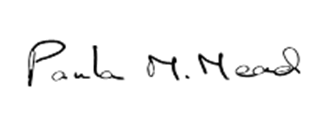 Paula M. Mead